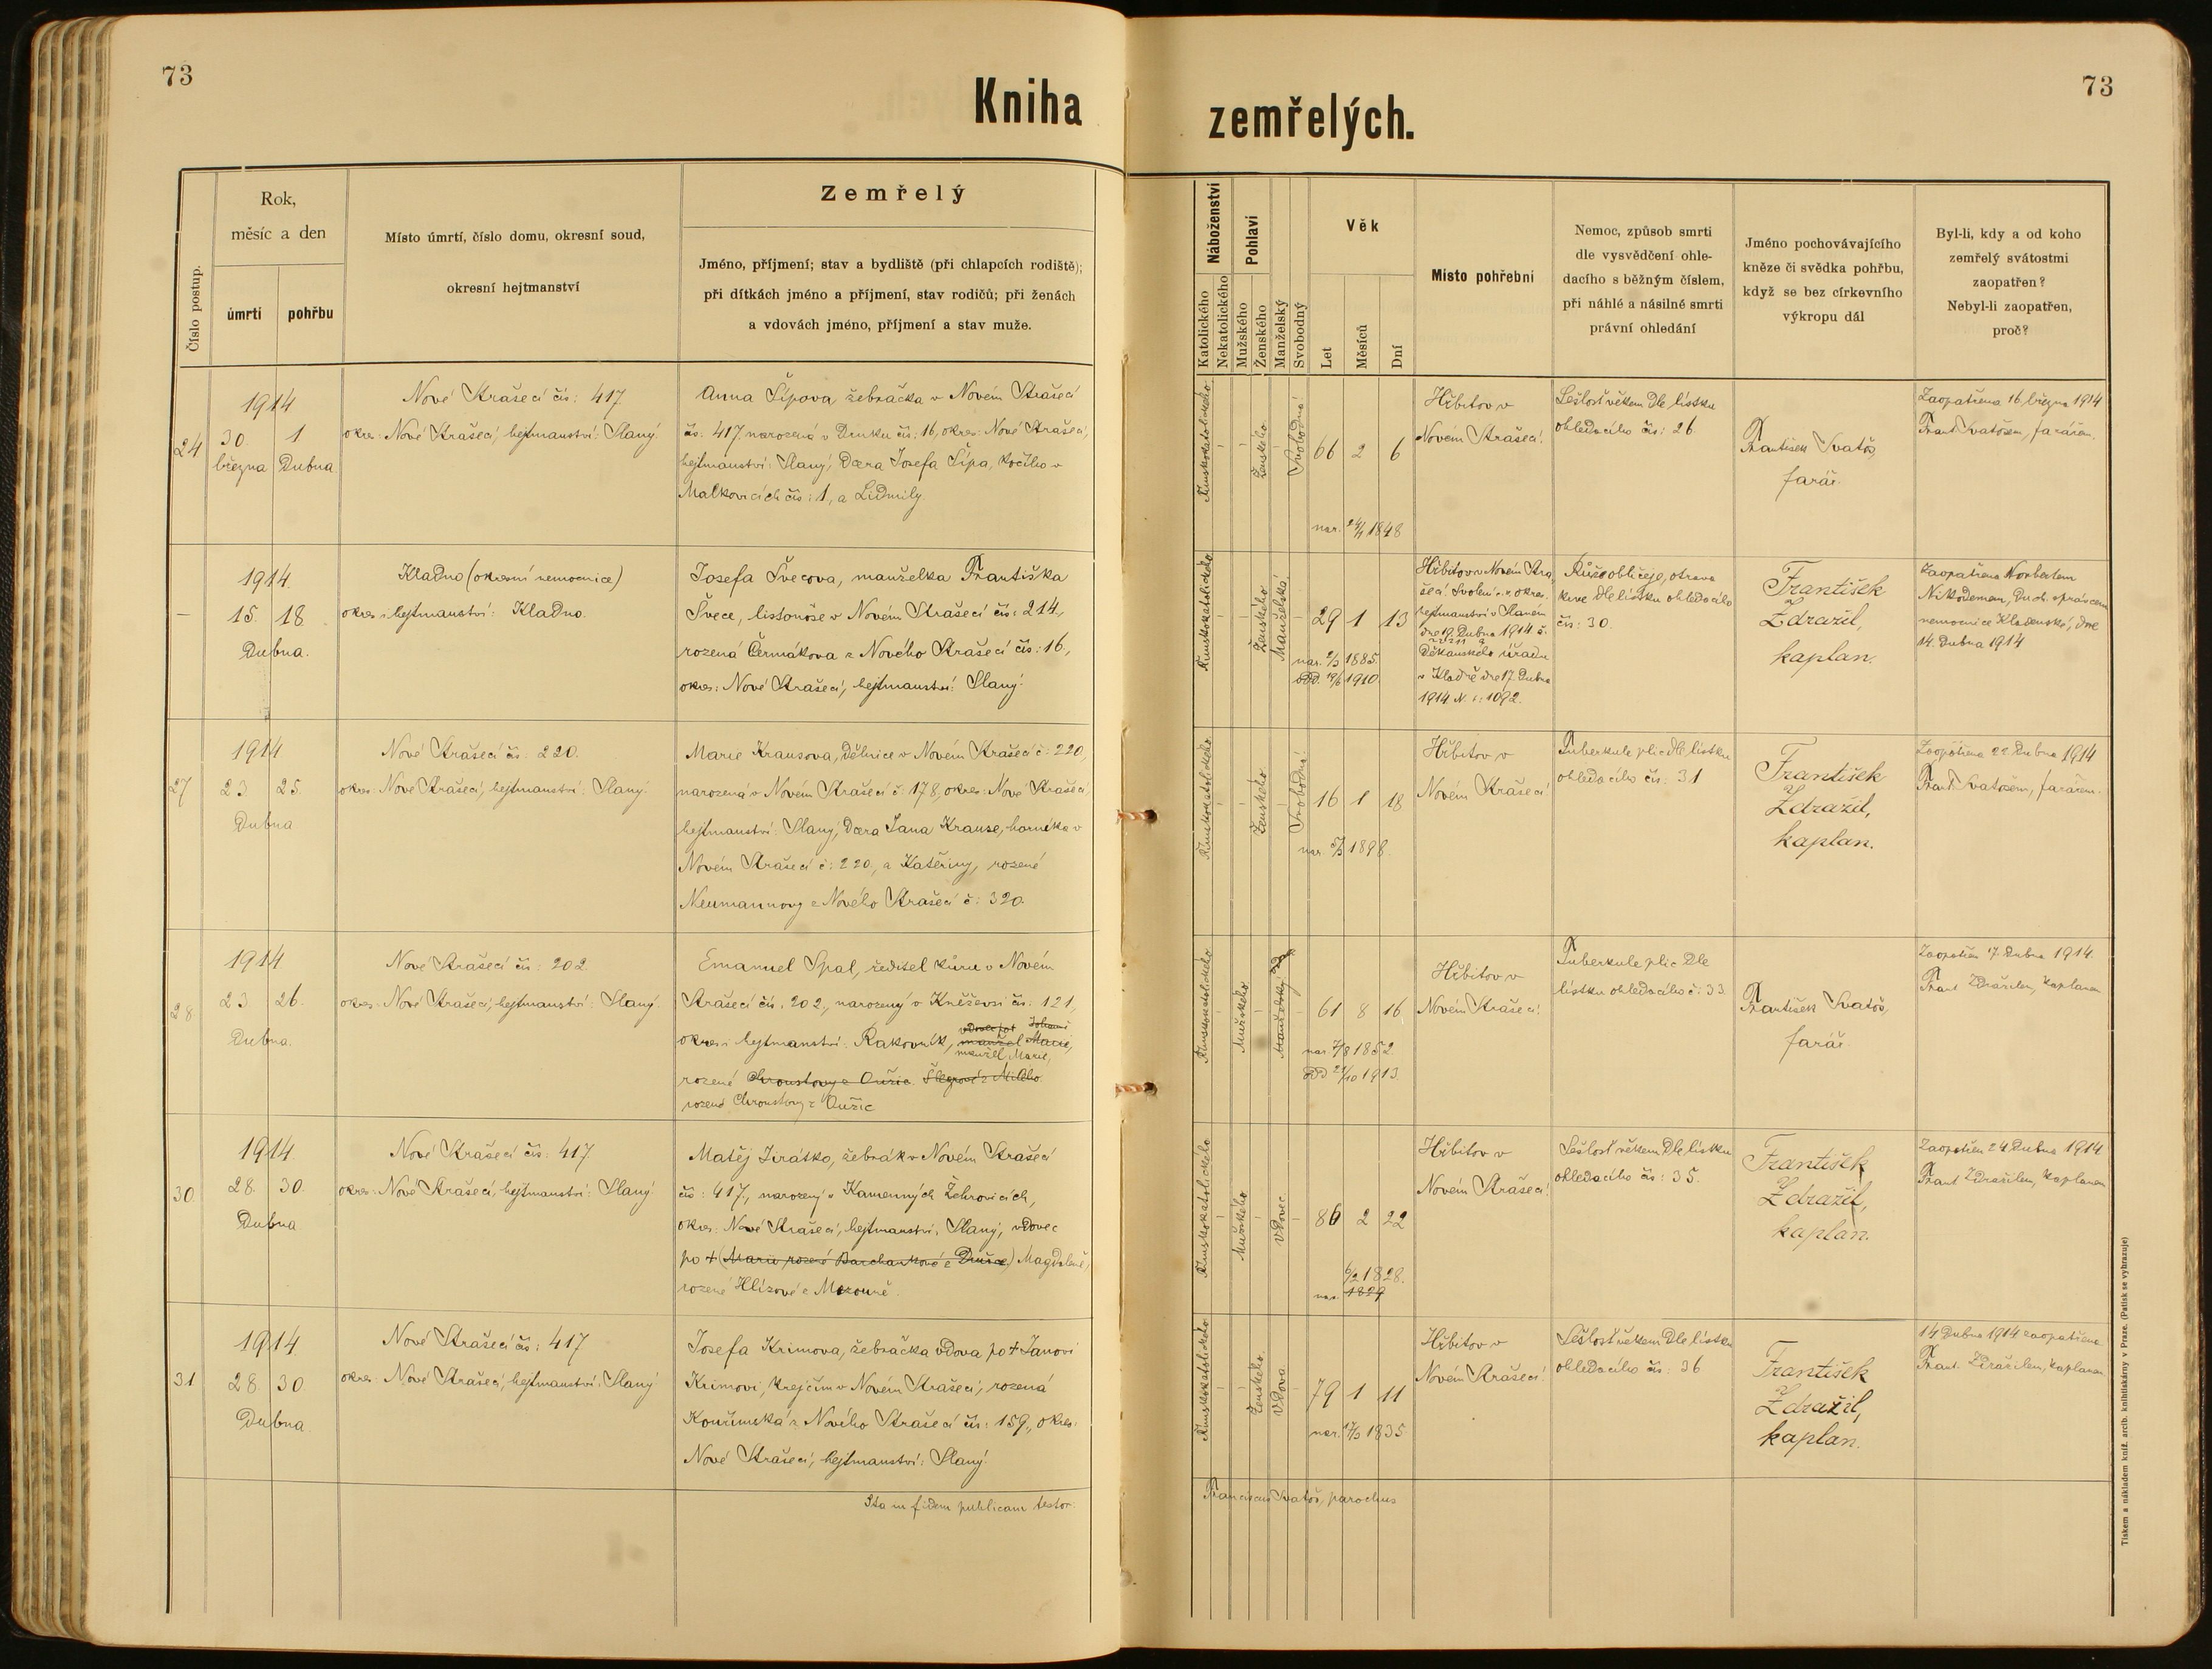 73
73
Kniha
zemřelých.
Číslo postup.
Rok,
měsíc a den
úmrtí
pohřbu
Místo úmrtí, číslo domu, okresní soud,
okresní hejtmanství
Zemřelý
Jméno, příjmení; stav a bydliště (při chlapcích rodiště);
při dítkách jméno a příjmení, stav rodičů; při ženách
a vdovách jméno, příjmení a stav muže.
Náboženství
Katolického
Nekatolického
Pohlaví
Mužského
Ženského
Manželský
Svobodný
Věk
Let
Měsíců
Dní
Místo pohřební
Nemoc, způsob smrti
dle vysvědčení ohle-
dacího s běžným číslem,
při náhlé a násilné smrti
právní ohledání
Jméno pochovávajícího
kněze či svědka pohřbu,
když se bez církevního
výkropu dál
Byl-li, kdy a od koho
zemřelý svátostmi
zaopatřen?
Nebyl-li zaopatřen,
proč?
24
1914
30. 1
března Dubna.
Nové Strašecí čís: 417
okres: Nové Strašecí, hejtmanství: Slaný.
Anna Šípova žebračka v Novém Strašecí
čs: 417. narozená v Drnku čís: 16, okres: Nové Strašecí,
hejtmanství: Slaný, Dcera Josefa Šípa, kočího v
Malkovicích čís: 1, a Lidmily.
Římskokatolického
Ženského
Svobodná
66 2 6
nar. 24/1 1848
Hřbitov v
Novém Strašecí.
Sešlost věkem Dle lístku
ohledacího čís: 26.
František Svatoš,
farář.
Zaopatřena 16. března 1914
Frant. Svatošem, farářem.
1914.
15. 18.
Dubna.
Kladno (okresní nemocnice)
okres i hejtmanství: Kladno.
Josefa Švecova, manželka Františka
Švece, listonoše v Novém Strašecí čís: 214,
rozená Čermákova z Nového Strašecí čís: 16,
okres: Nové Strašecí, hejtmanství: Slaný.
Římskokatolického
Ženského
Manželská
29 1 13
nar. 2/3 1885.
odd. 19/6 1910.
Hřbitov v Novém Stra
šecí. Svolení c. k okres.
hejtmanství v Slaném
dne 19. Dubna 1914 č.
Děkanského úřadu
v Kladně dne 17. Dubna
1914 N. č: 1092.
Růže obličeje, otrava
krve dle lístku ohledacího
čís: 30.
František
Zdražil,
kaplan.
Zaopatřena Norbertem
Nikodemem, Duch. správcem
nemocnice Kladenské, dne
14. Dubna 1914
27
1914
23 25.
Dubna
Nové Strašecí čs. 220.
okres: Nové Strašecí, hejtmanství: Slaný.
Marie Krausova, Dělnice v Novém Strašecí č: 220,
narozená v Novém Strašecí č: 178, okres: Nové Strašecí,
hejtmanství: Slaný, Dcera Jana Krause, horníka v
Novém Strašecí č: 220, a Kateřiny, rozené
Neumannovy z Nového Strašecí č: 320.
Římskokatolického
Ženského
Svobodná
16 1 18
nar. 5/3 1898.
Hřbitov v
Novém Strašecí
Tuberkule plic dle lístku
ohledacího čís: 31
František
Zdražil,
kaplan.
Zaopatřena 22 Dubna 1914
Frant Svatošem, farářem.
28
1914
23 26.
Dubna.
Nové Strašecí čs: 202.
okres: Nové Strašecí, hejtmanství: Slaný.
Emanuel Spal, ředitel kůru v Novém
Strašecí čís. 202, narozený v Kněževsi čís: 121,
okres i hejtmanství: Rakovník, manžel Marie,
manžel Marie,
rozené Chroustovy z Ouřic.
rozené Chroustovy z Ouřic
Římskokatolického
Mužského
Manželský
61 8 16
nar. 7/8 1852.
odd 21/10 1913
Hřbitov v
Novém Strašecí.
Tuberkule plic Dle
lístku ohledacího č: 33.
František Svatoš,
farář.
Zaopatřen 17 Dubna 1914.
Frant Zdražilem, kaplanem
30
1914.
28. 30.
Dubna
Nové Strašecí čís: 417
okres: Nové Strašecí, hejtmanství: Slaný
Matěj Jirátko, žebrák v Novém Strašecí
čís: 417, narozený v Kamenných Žehrovicích,
okres: Nové Strašecí, hejtmanství: Slaný, vdovec
po + (Marii rozené) Magdaleně,
rozené Hlízové z Mozouně.
Římskokatolického
Mužského
Vdovec
86 2 22
6/2 1828.
nar. 1829
Hřbitov v
Novém Strašecí.
Sešlost věkem Dle lístku
ohledacího čís: 35.
František
Zdražil,
kaplan.
Zaopatřen 24 Dubna 1914
Frant Zdražilem, kaplanem
31
1914.
28. 30.
Dubna.
Nové Strašecí čs: 417
okres: Nové Strašecí, hejtmanství: Slaný
Josefa Krimova, žebračka vdova po + Janovi
Krimovi, krejčím v Novém Strašecí, rozená
Kouřimská z Nového Strašecí čís: 159, okres:
Nové Strašecí, hejtmanství: Slaný.
Římskokatolického
Ženského.
Vdova
79 1 11
nar. 17/3 1835
Hřbitov v
Novém Strašecí.
Sešlost věkem Dle lístku
ohledacího čís: 36
František
Zdražil,
kaplan.
14 Dubna 1914 zaopatřena
Frant. Zdražilem, kaplanem
Ita in fidem publicam testor:
Franciscus Svatoš, parochus
Tiskem a nákladem kníž. arcib. knihtiskárny v Praze. (Patisk se vyhrazuje)